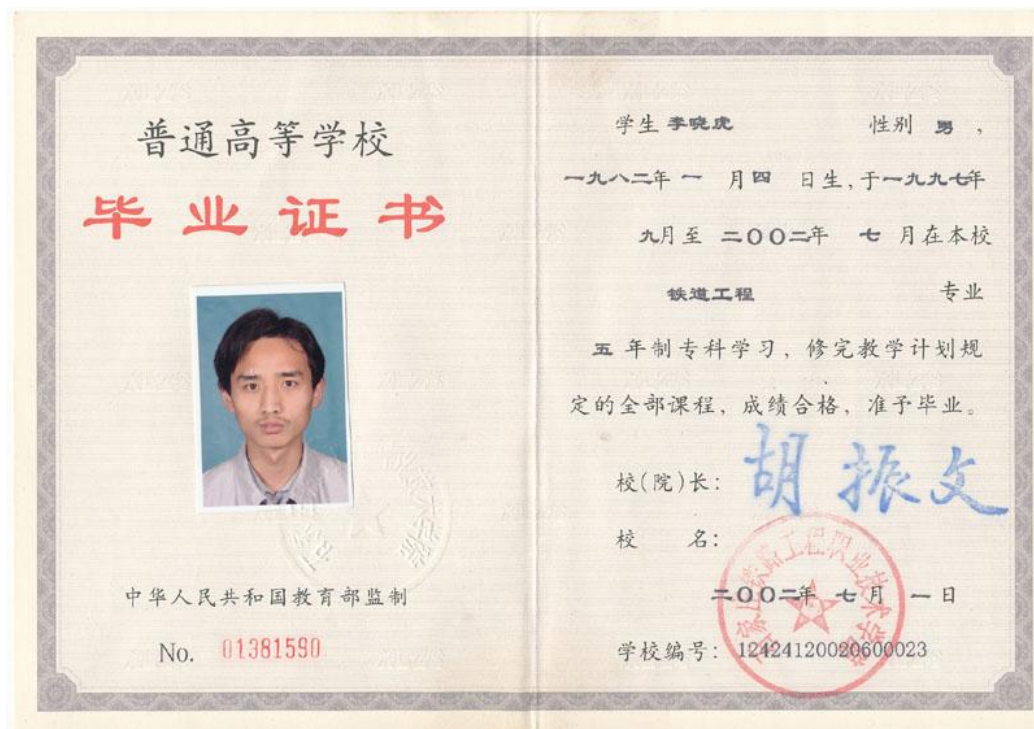 普通高等学校
毕业证书
中华人民共和国教育部监制
No. 01381590
学生 李晓虎 性别 男 ,
一九八二年 一 月四 日生,于一九九七年
九月至 二〇〇二年 七 月在本校
铁道工程 专业
五 年制专科学习, 修完教学计划规
定的全部课程, 成绩合格, 准予毕业。
校(院)长: 胡振文
校 名:
铁路工程职业技术学院
二〇〇二年 七 月 一 日
学校编号: 12424120020600023